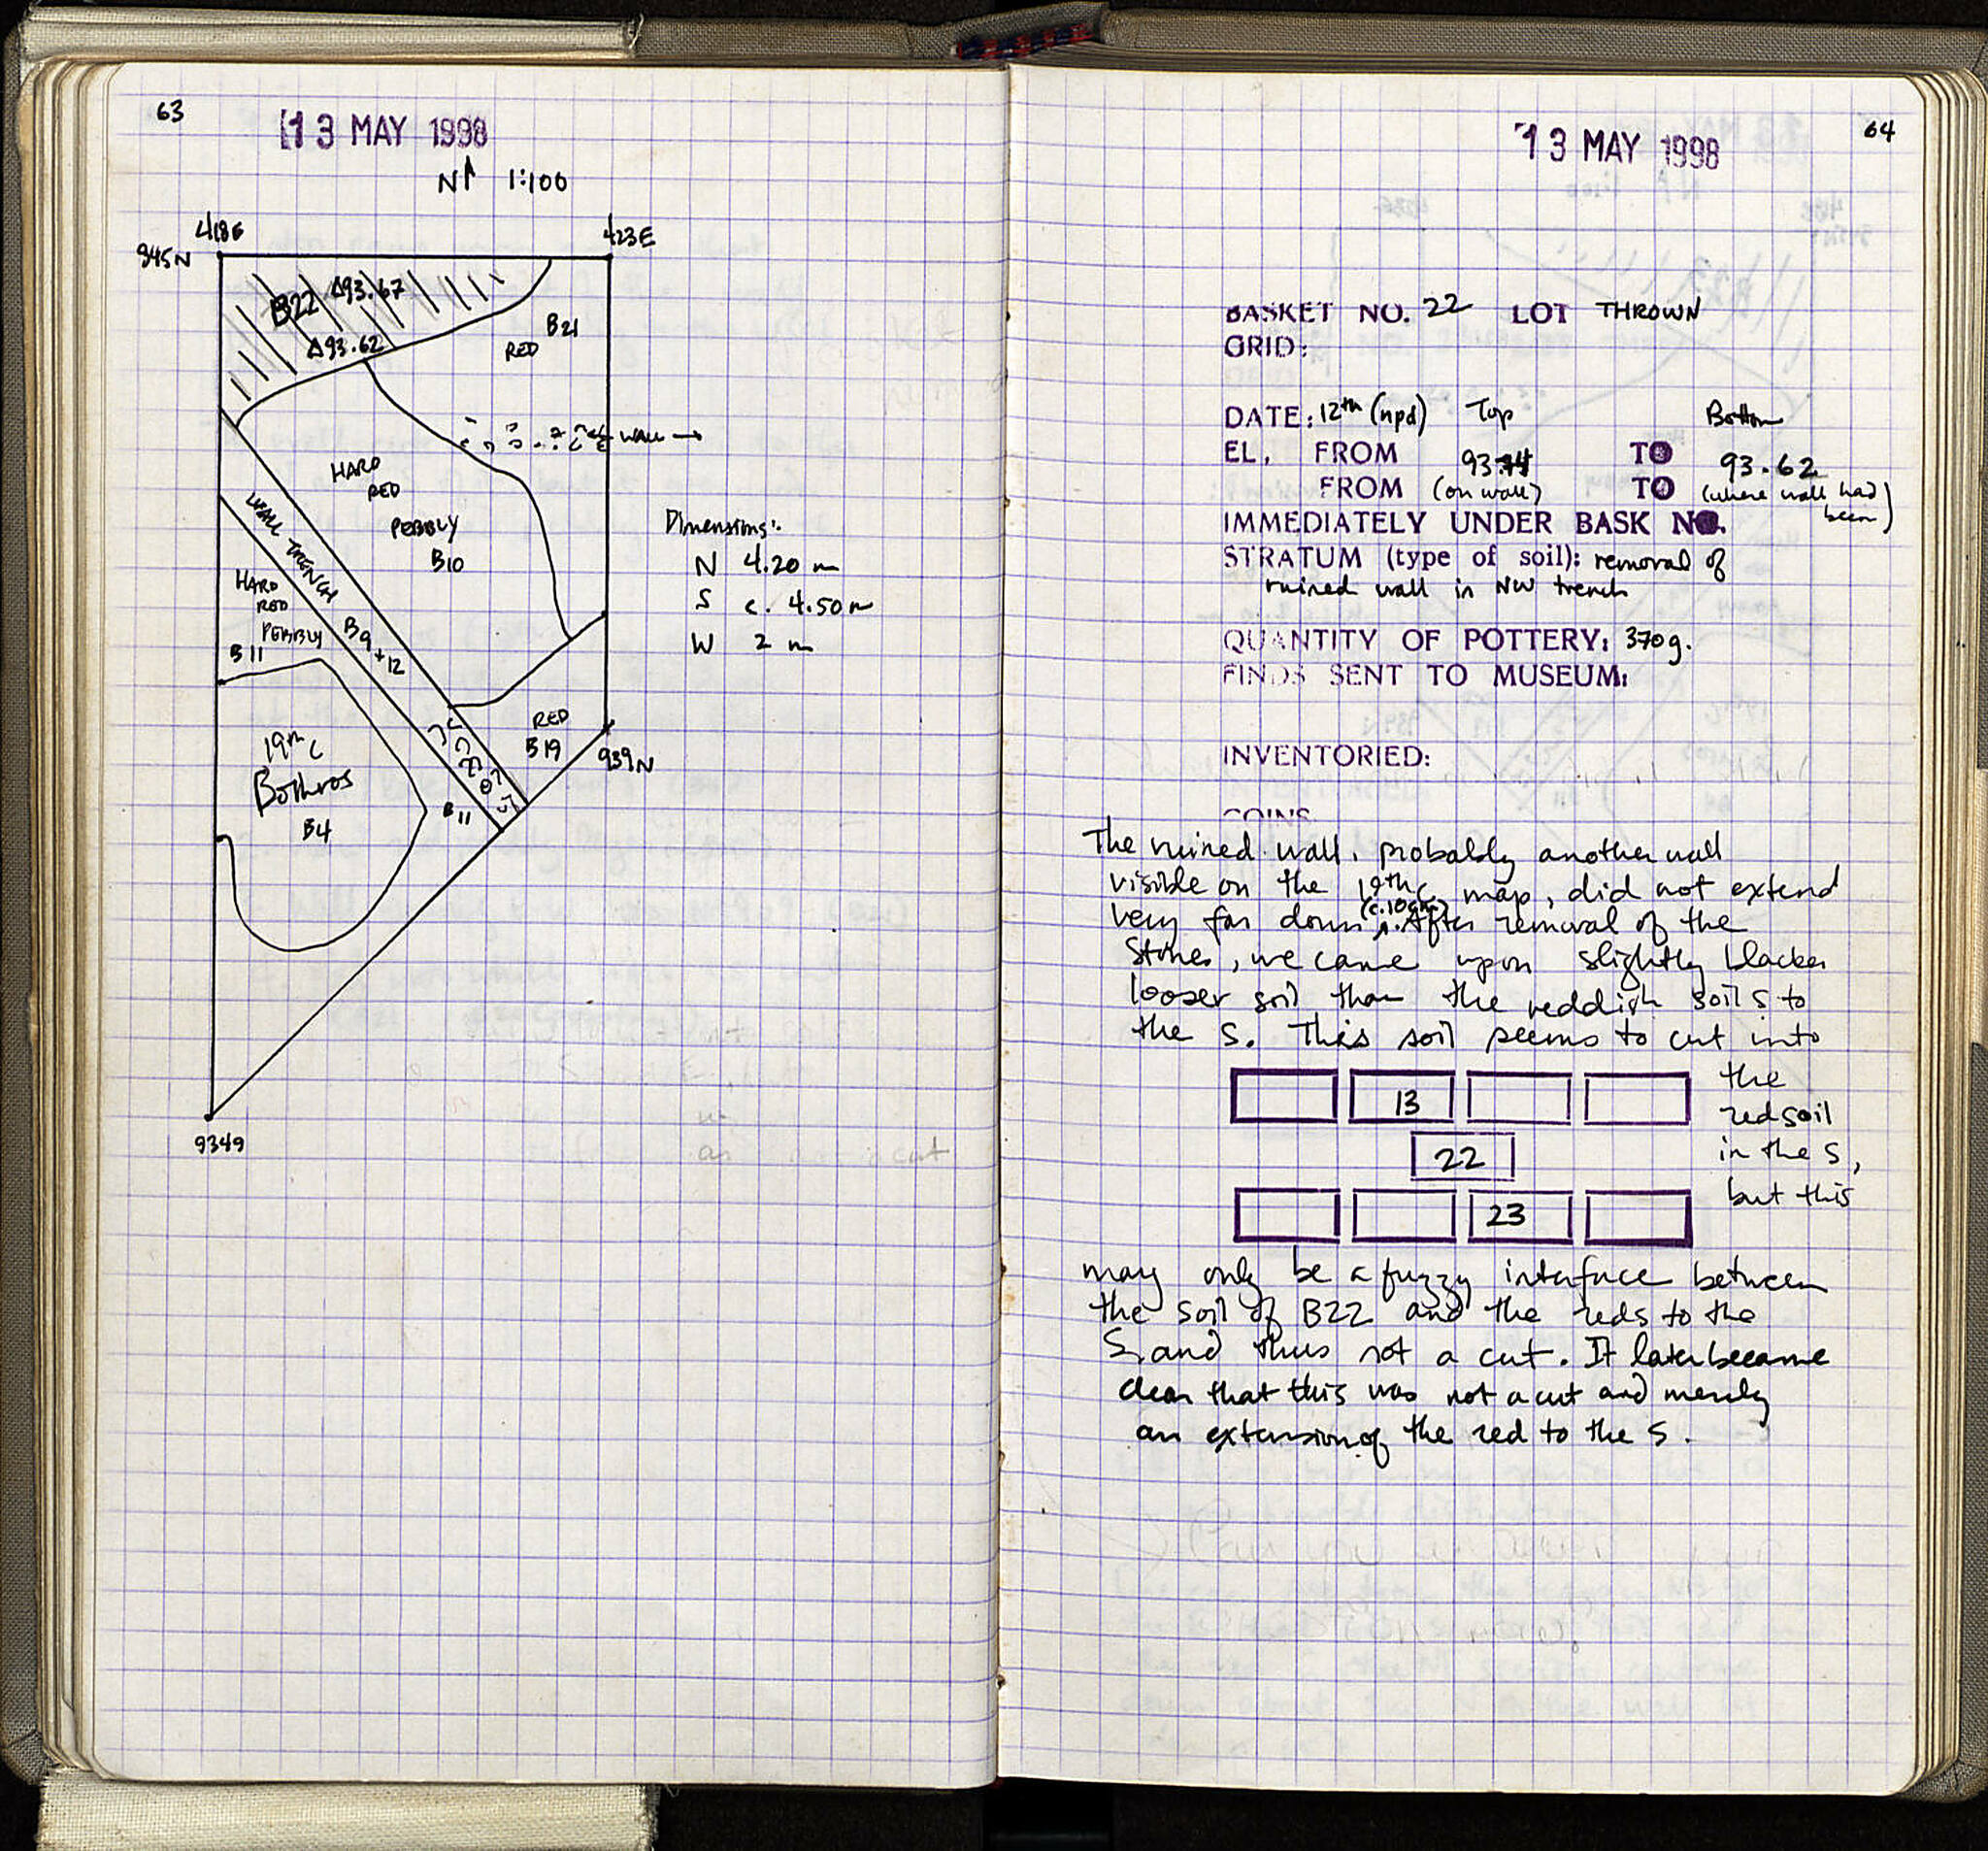 63
13 MAY 1998
N 1:100
418E
423E
945N
B22
Δ93.67
Δ93.62
B21
RED
WALL →
HARD
RED
PEBBLY
B10
WALL TRENCH B9 + 12
HARD
RED
PEBBLY
B11
Dimensions:
N 4.20 m
S c. 4.50 m
W 2 m
RED
B19
939N
19th C
Bothros
B4
B11
9349
13 MAY 1998
64
BASKET NO. 22 LOT THROWN
GRID:
DATE: 12th (npd) Top Bottom
EL. FROM 93.74 TO 93.62
FROM (on wall) TO (where wall had been)
IMMEDIATELY UNDER BASK NO.
STRATUM (type of soil): removal of
ruined wall in NW trench
QUANTITY OF POTTERY: 370g.
FINDS SENT TO MUSEUM:
INVENTORIED:
COINS
The ruined wall, probably another wall
visible on the 19th c map, did not extend
very far down (c. 10cm). After removal of the
stones, we came upon slightly blacker
looser soil than the reddish soils to
the S. This soil seems to cut into
the
red soil
in the S,
but this
13
22
23
may only be a fuzzy interface between
the soil of B22 and the reds to the
S, and thus not a cut. It later became
clear that this was not a cut and merely
an extension of the red to the S.